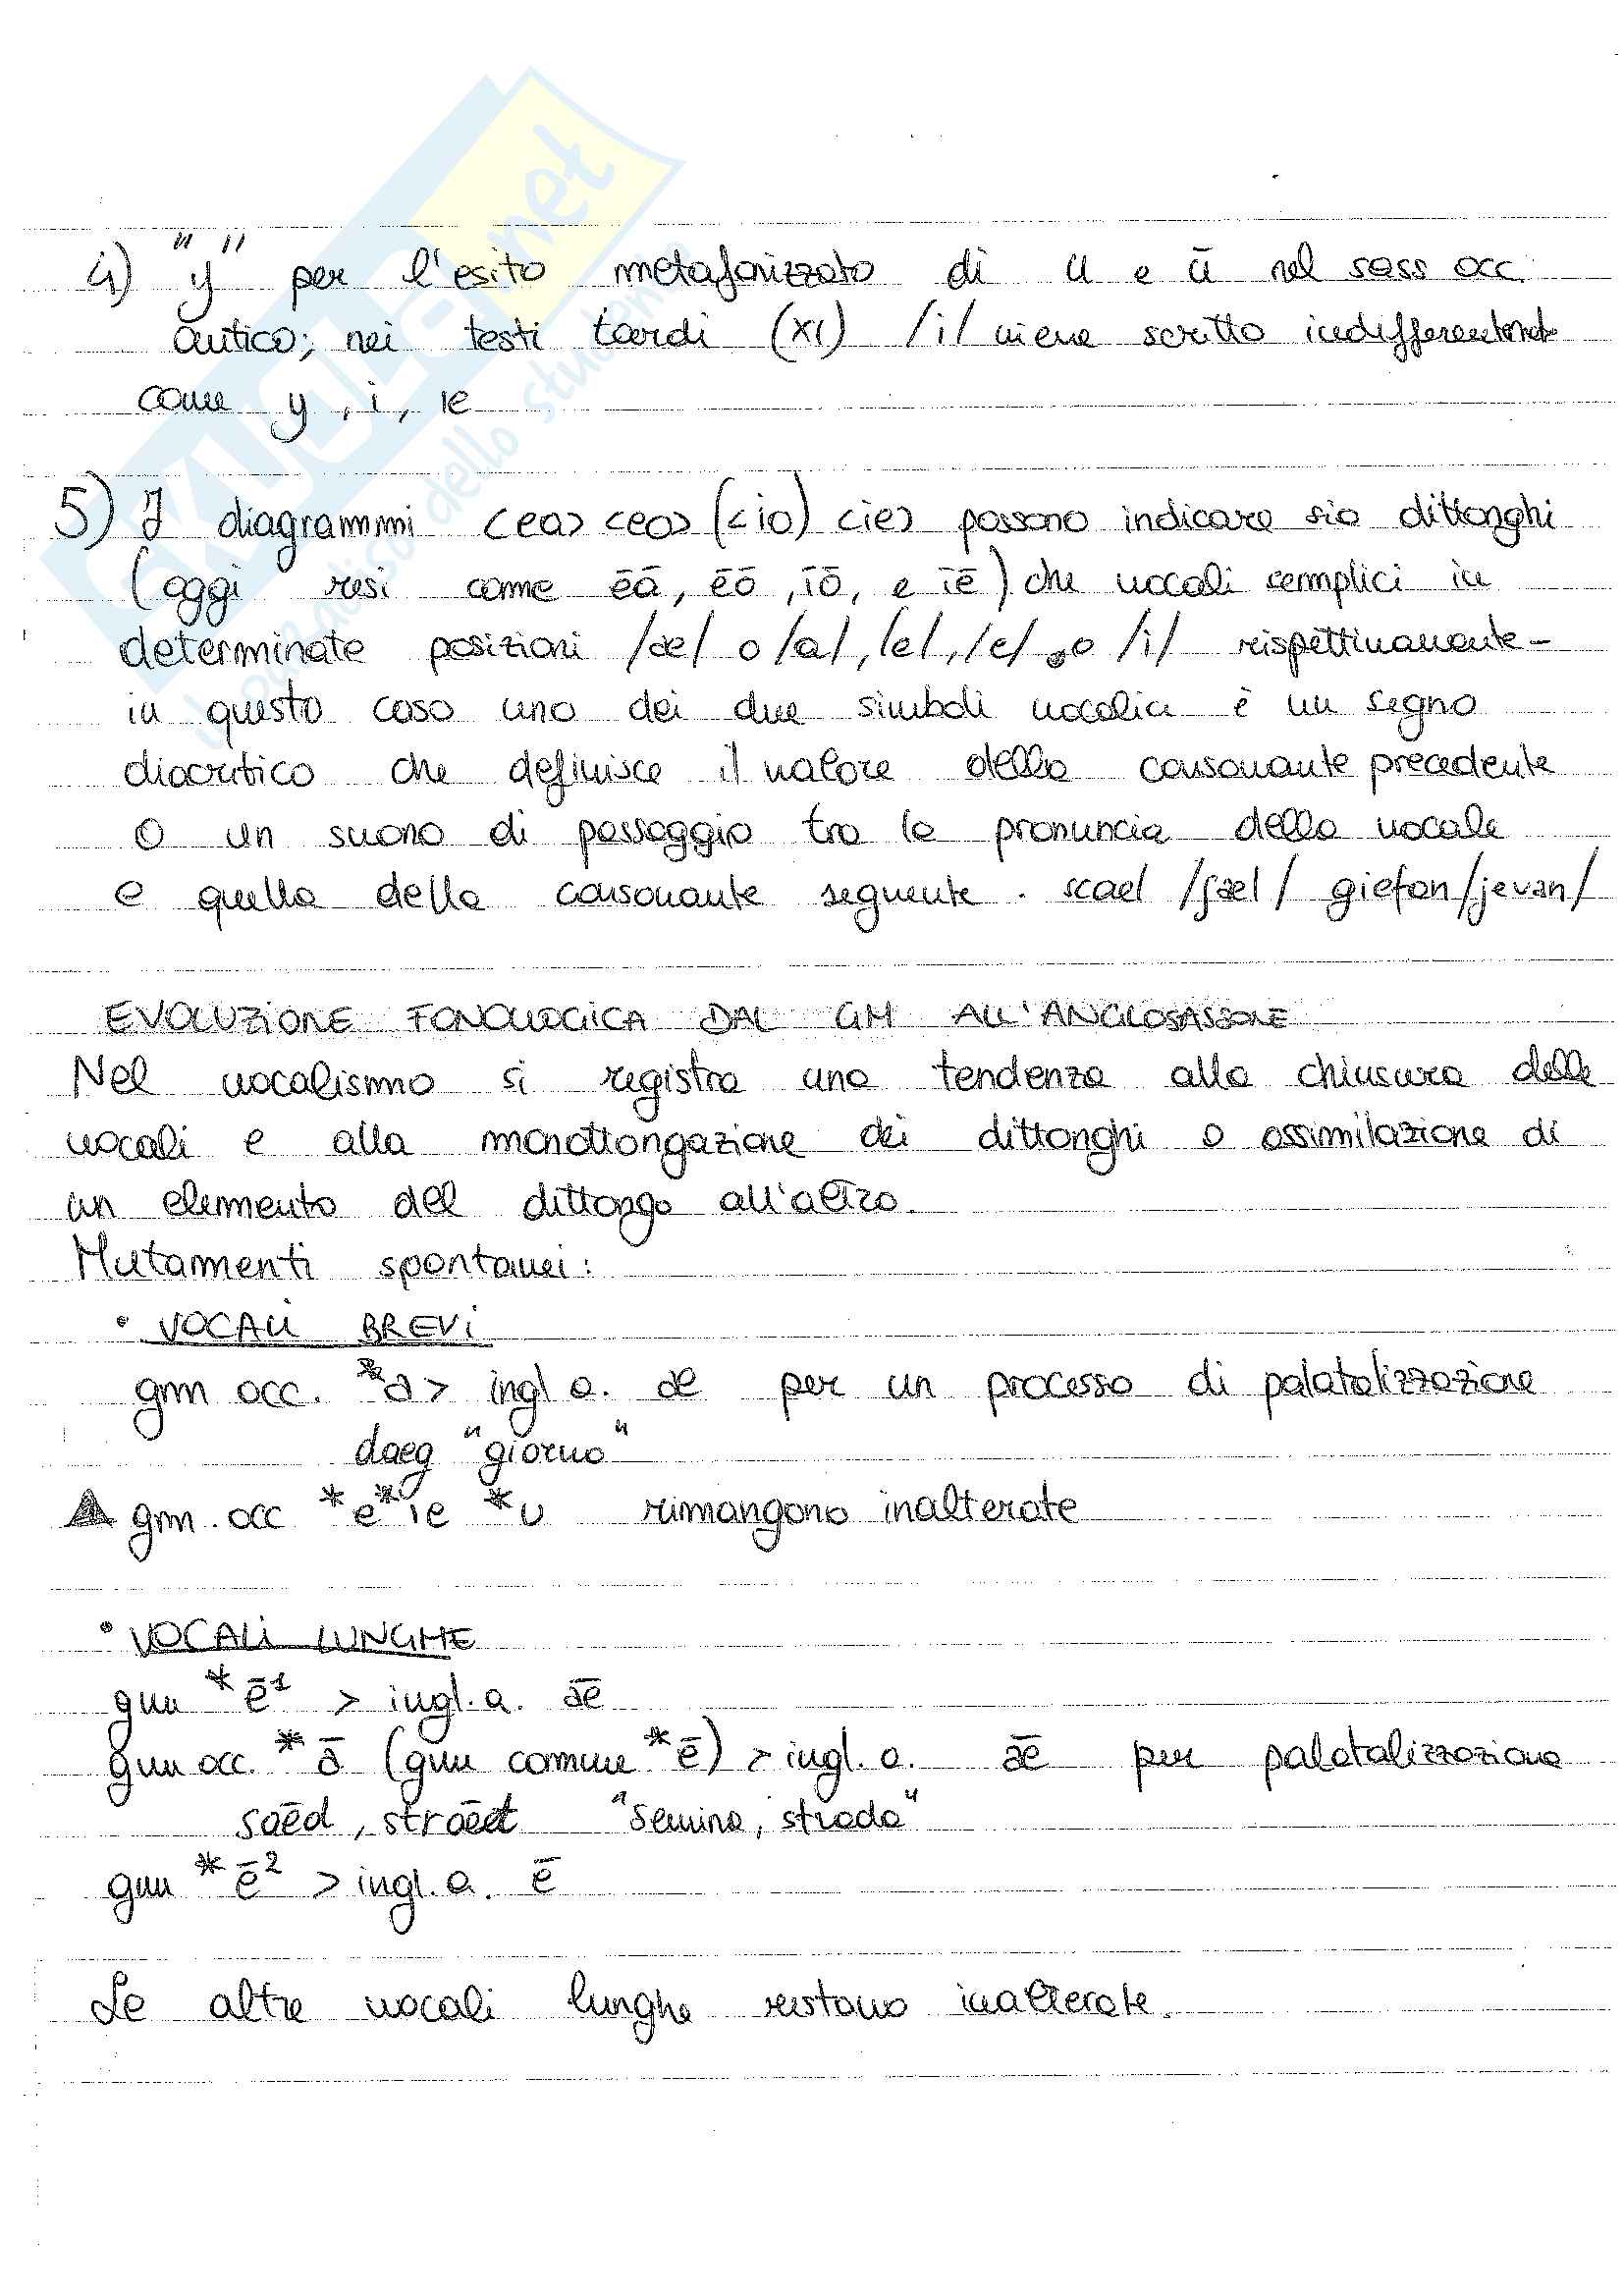 4) "y" per l'esito metafonizzato di u e ū nel sass occ.
antico; nei testi tardi (XI) /i/ viene scritto indifferentemente
come y, i, ie
5) I diagrammi <ea> <eo> (<io) <ie> possono indicare sia dittonghi
(oggi resi come ēā, ēō, īō, e īē) che vocali semplici in
determinate posizioni /æ/ o /a/, /e/, /e/ o /i/ rispettivamente -
in questo caso uno dei due simboli vocalici è un segno
diacritico che definisce il valore della consonante precedente
o un suono di passaggio tra la pronuncia della vocale
e quella della consonante seguente. scael /ʃæl/ giefan /jevan/
EVOLUZIONE FONOLOGICA DAL GM ALL'ANGLOSASSONE
Nel vocalismo si registra una tendenza alla chiusura delle
vocali e alla monottongazione dei dittonghi o assimilazione di
un elemento del dittongo all'altro.
Mutamenti spontanei:
• VOCALI BREVI
gm occ. *a > ingl a. æ per un processo di palatalizzazione
daeg "giorno"
gm. occ *e *i e *u rimangono inalterate
• VOCALI LUNGHE
gm *ē¹ > ingl. a. ǣ
gm occ. *ā (gm comune *ē) > ingl. a. ǣ per palatalizzazione
sǣd, strǣt "semina, strada"
gm *ē² > ingl. a. ē
Le altre vocali lunghe restano inalterate.